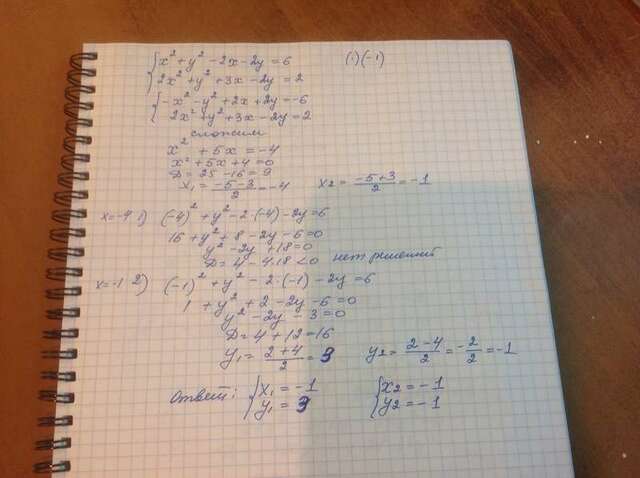 {x² + y² - 2x - 2y = 6 (·)(-1)
{2x² + y² + 3x - 2y = 2
{-x² - y² + 2x + 2y = -6
{2x² + y² + 3x - 2y = 2
сложим
x² + 5x = -4
x² + 5x + 4 = 0
D = 25 - 16 = 9
x₁ = (-5-3)/2 = -4 x₂ = (-5+3)/2 = -1
x=-4 1) (-4)² + y² - 2·(-4) - 2y = 6
16 + y² + 8 - 2y - 6 = 0
y² - 2y + 18 = 0
D = 4 - 4·18 < 0 нет решений
x=-1 2) (-1)² + y² - 2·(-1) - 2y = 6
1 + y² + 2 - 2y - 6 = 0
y² - 2y - 3 = 0
D = 4 + 12 = 16
y₁ = (2+4)/2 = 3 y₂ = (2-4)/2 = -2/2 = -1
Ответ: {x₁ = -1 {x₂ = -1
{y₁ = 3 {y₂ = -1